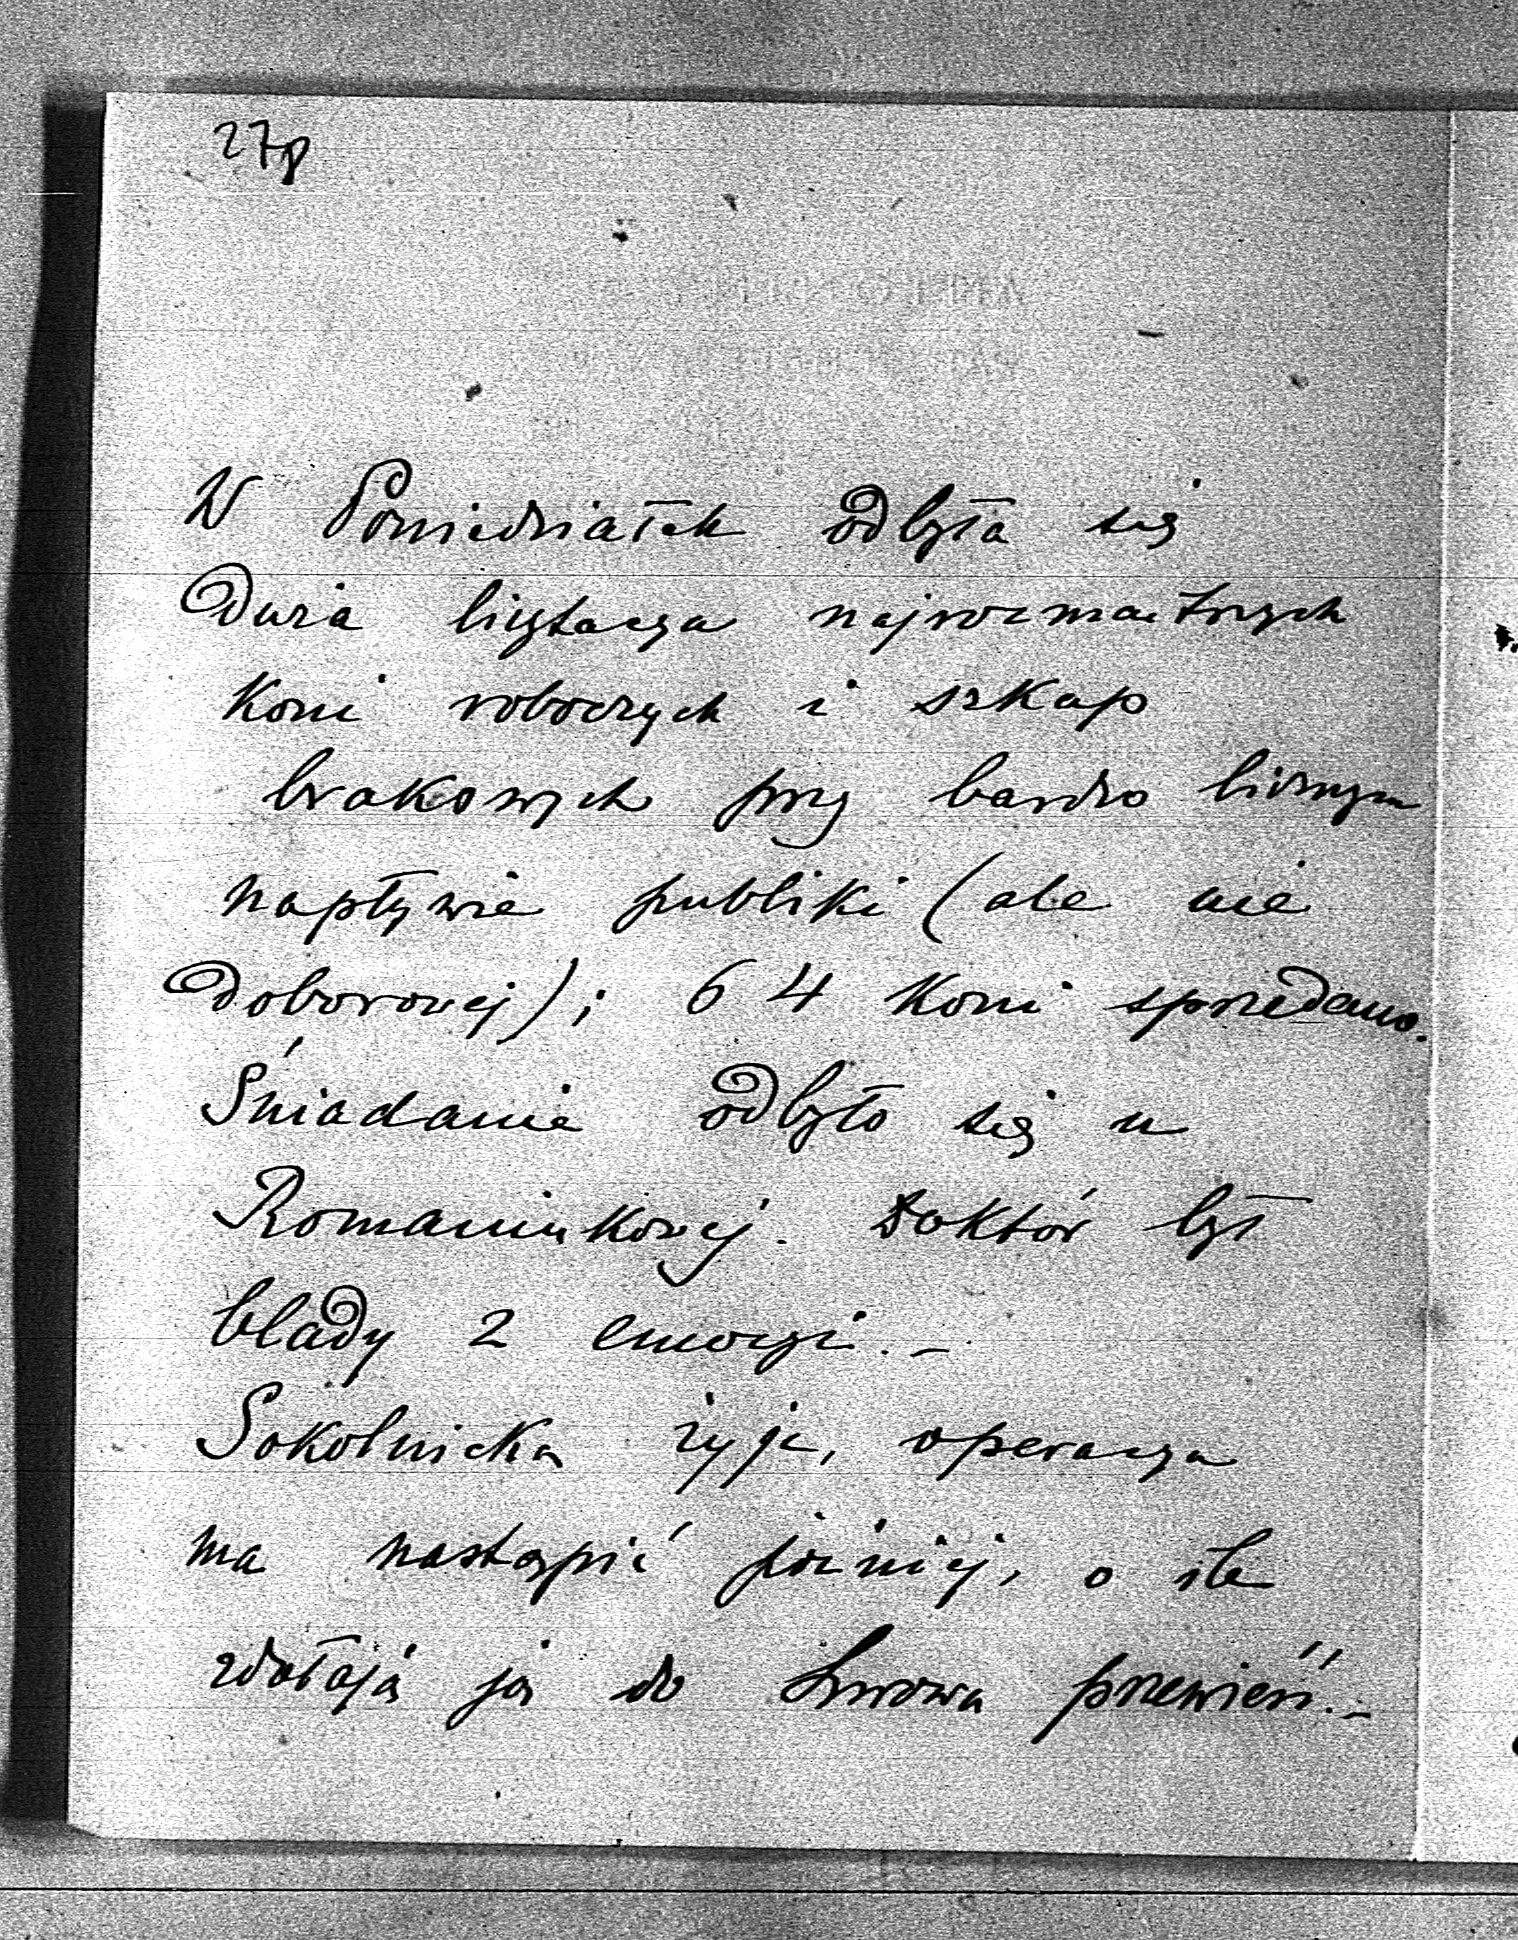 27p
W Poniedziałek odbyła się
Duża licytacya najrozmaitszych
koni roboczych i szkap
brakowych przy bardzo licznym
napływie publiki (ale nie
doborowej); 64 koni sprzedano.
Śniadanie odbyło się u
Romaniukowej. Doktór był
blady z emocyi. –
Sokolnicka żyje, operacya
ma nastąpić później, o ile
zdołają ją do Lwowa przewieść. –